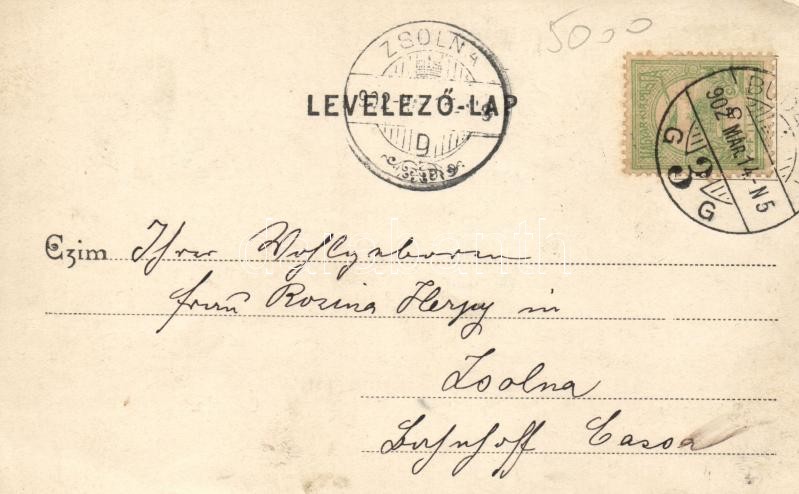 5000
ZSOLNA
D
LEVELEZŐ-LAP
902 MÁR 14-N5
G 3 G
Czim Ihrer Wohlgeboren
Frau Rozina Herpy in
Zsolna
Bahnhoff Cassa